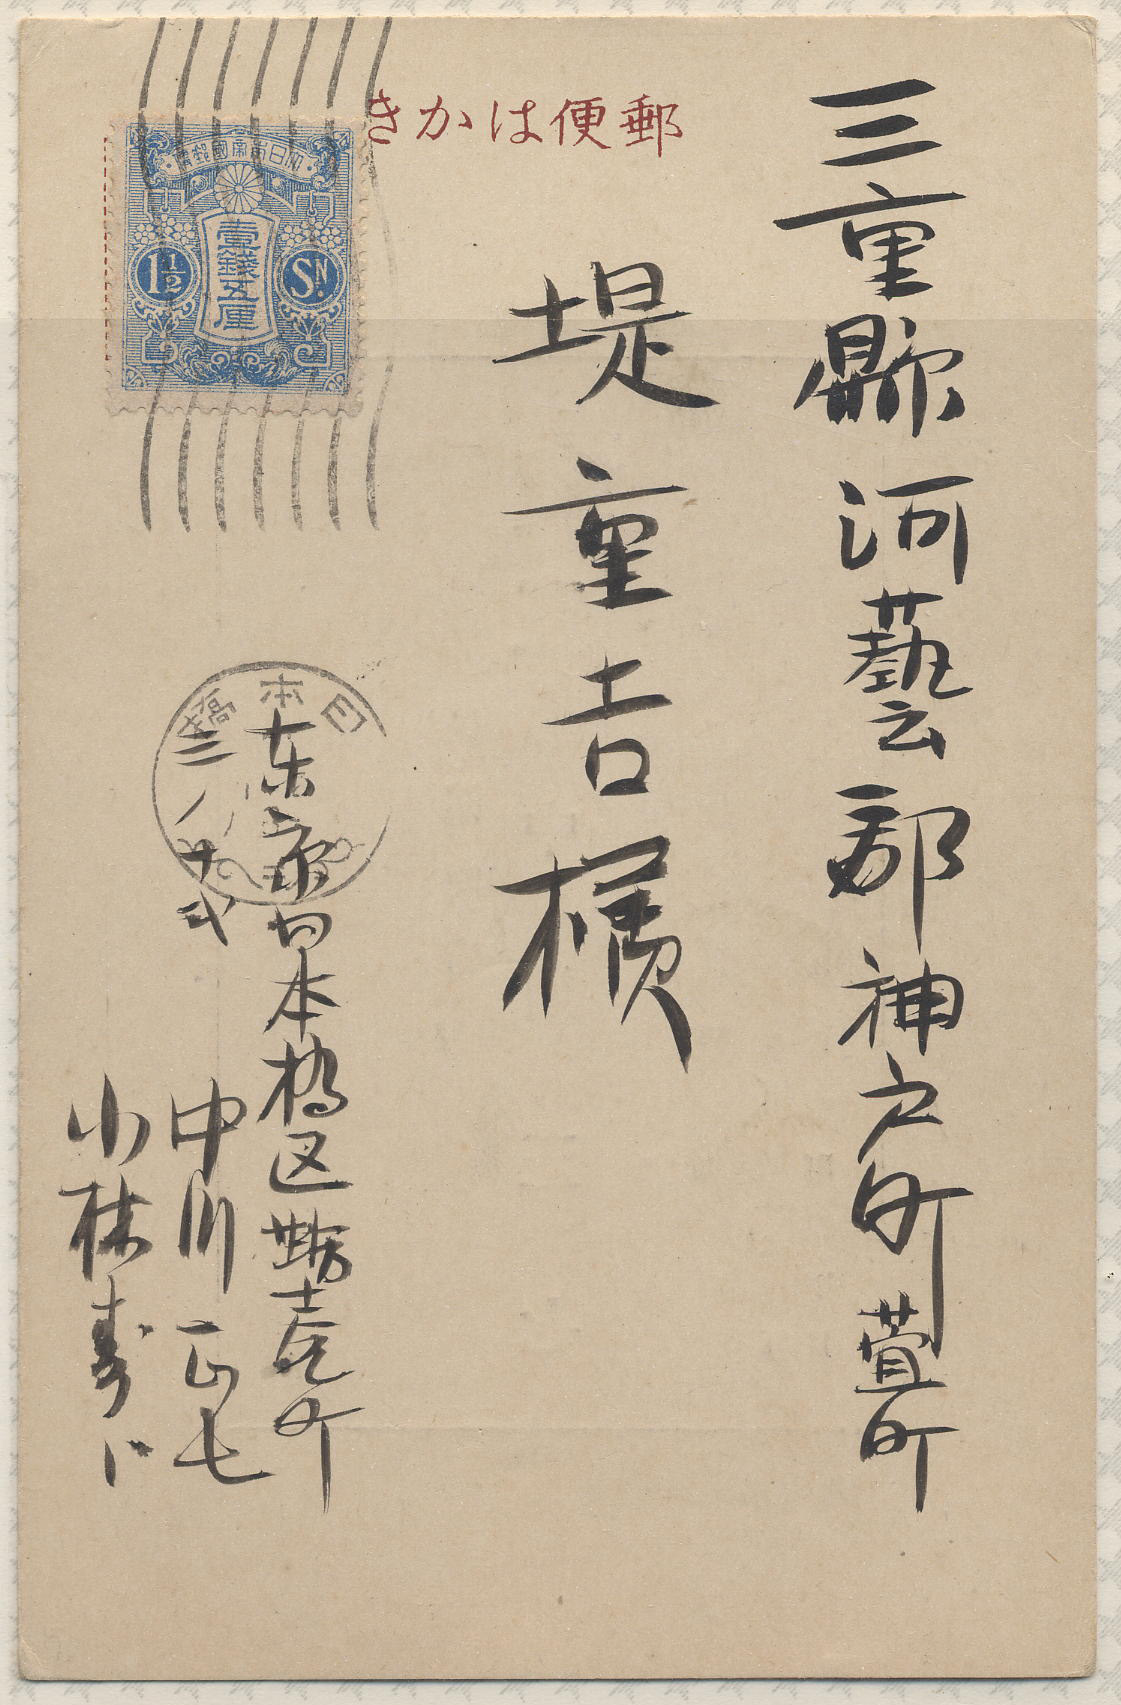 郵便はかき
三重縣河藝郡神戸町萱町
堤重吉様
大日本帝國郵便
壹錢五厘
1½ SN.
日本橋
东京日本橋区蛎壳町
二ノ十弍
中川正七
小林寿